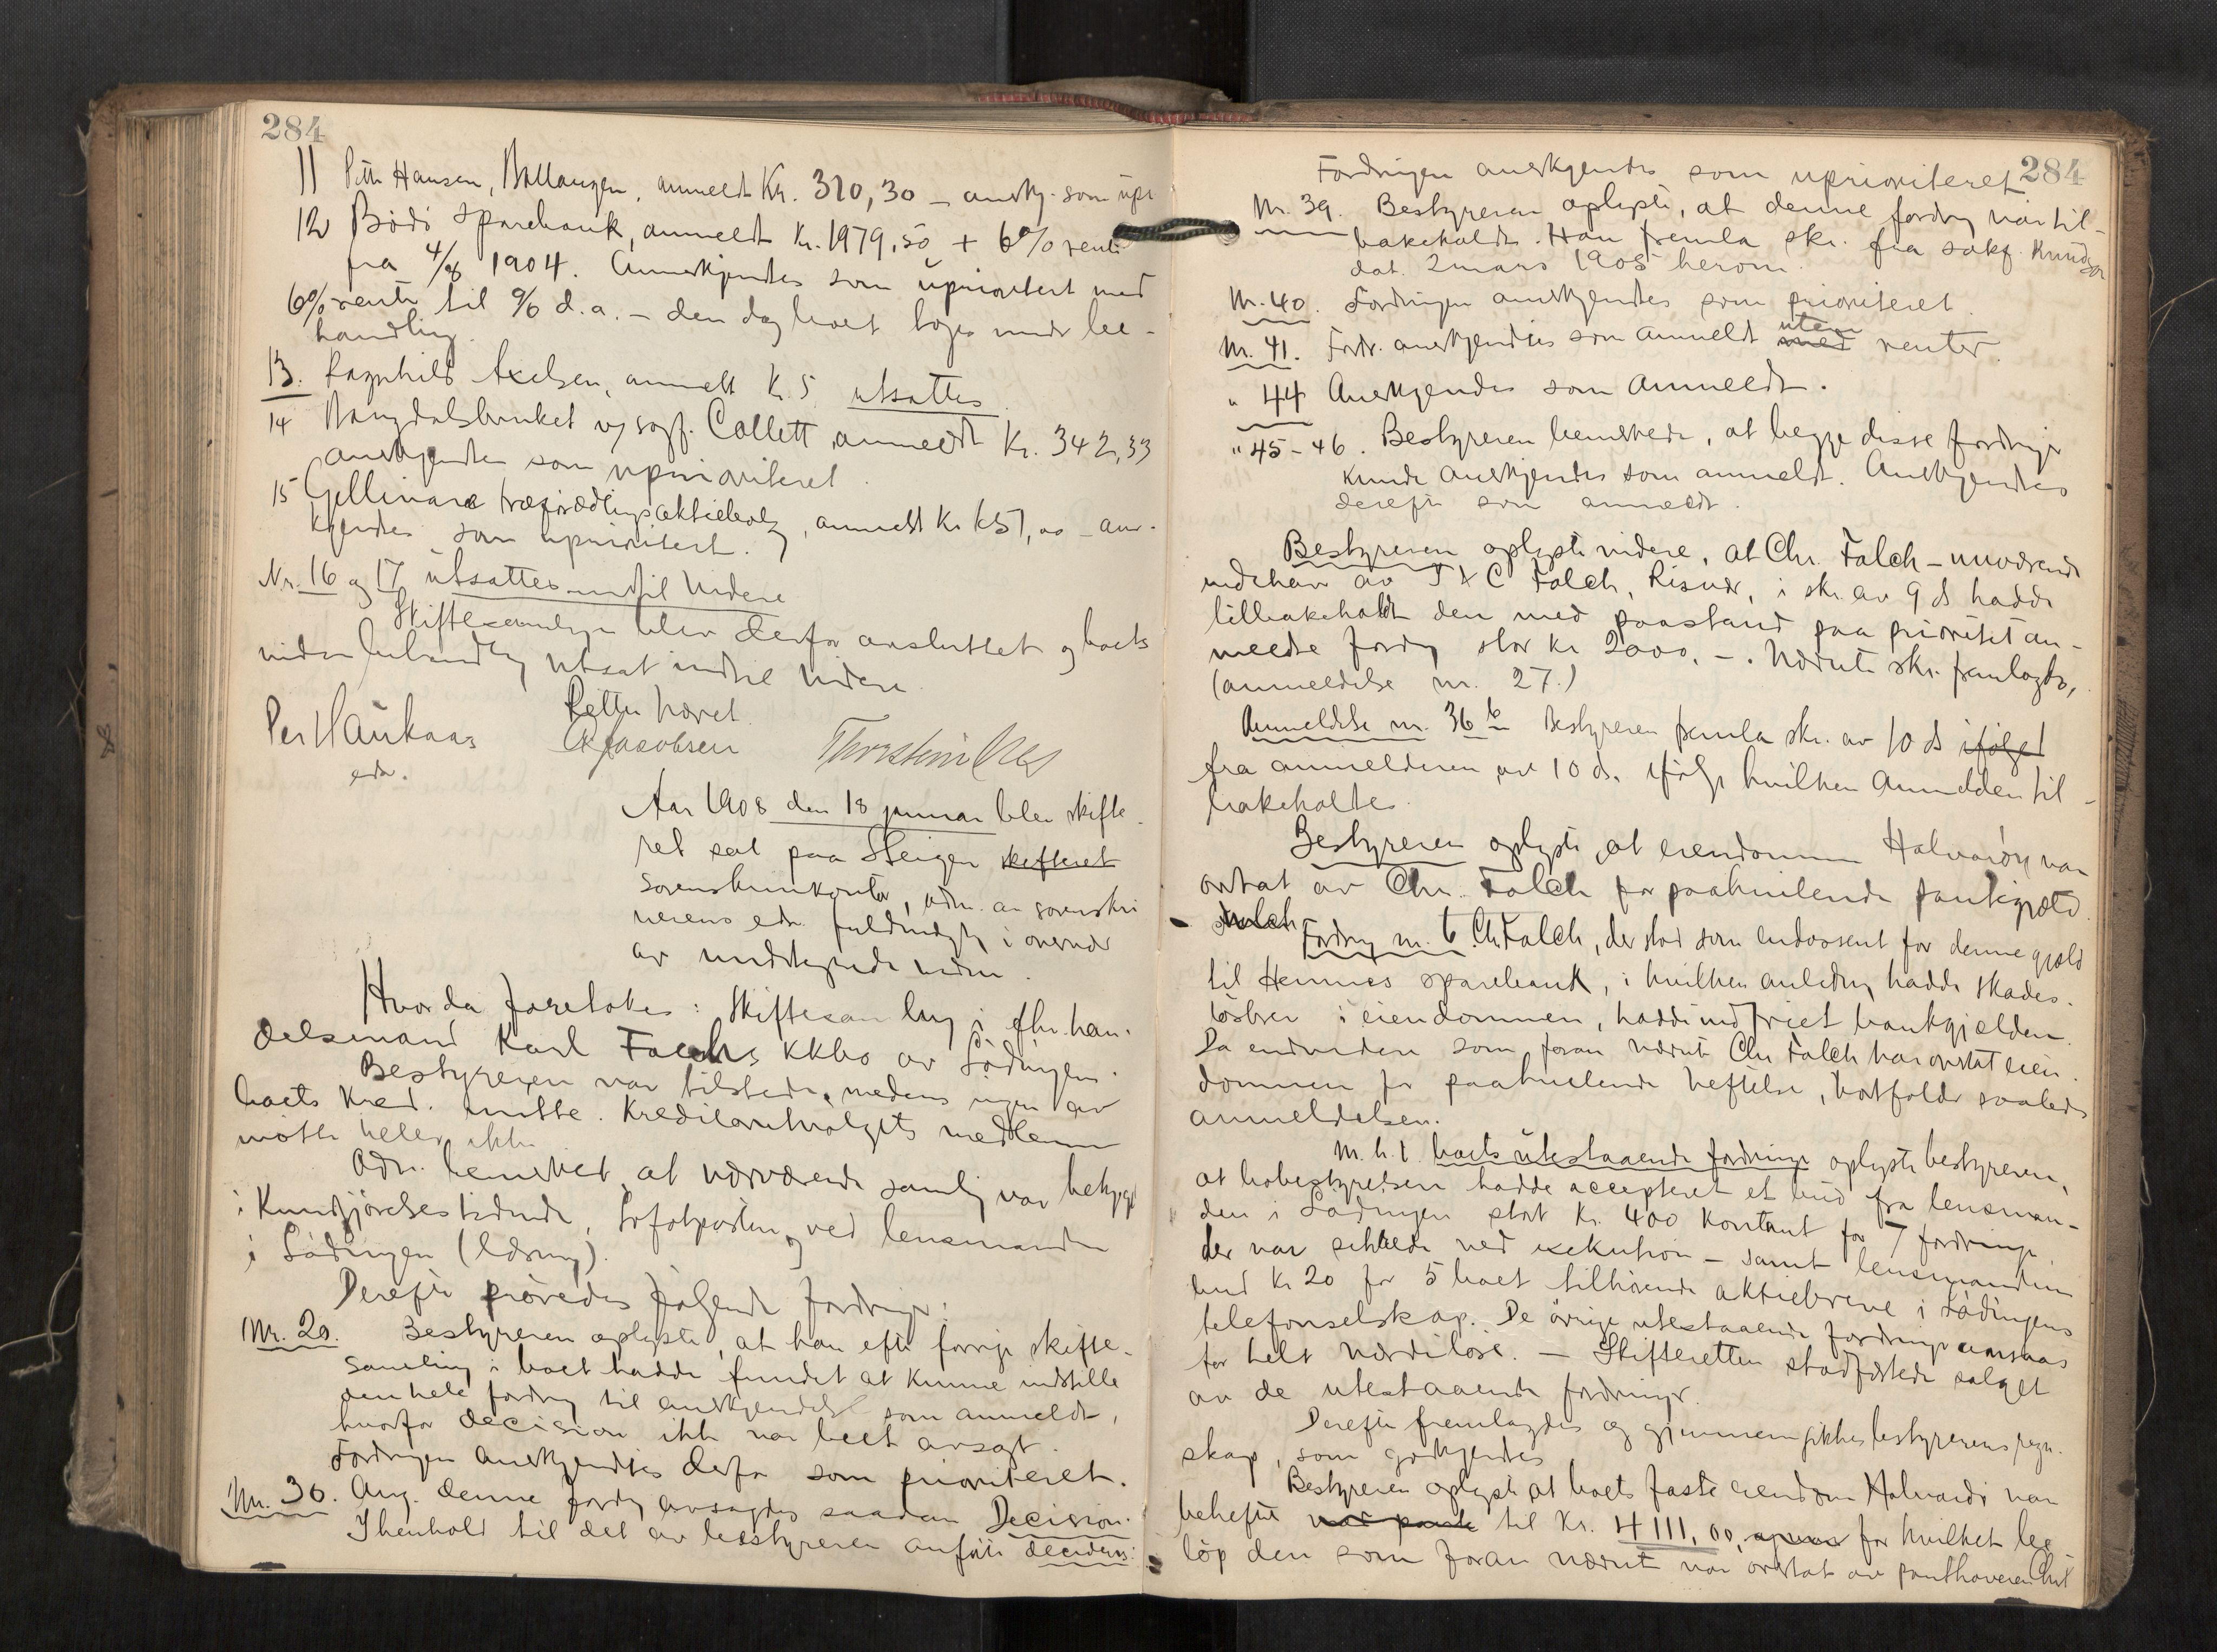 284
11 Petter Hansen, Ballangen, anmeldt Kr. 320,30 – anerkj. som upr
12 Bodö Sparebank, anmeldt Kr. 1979,50 + 6% rente
fra 4/8 1904. Annerkjendtes som uprioritert med
6% rente til 9/6 d.a. – den dag boet toges under be-
handling.
13. Ragnhild Axelsen, anmeldt K. 5 utsattes
14 Namdalsbruket v/ sagf. Collett anmeldt Kr. 342,33
anerkjendtes som uprioriteret.
15 Gellivara træforædlingsaktiebolag, anmeldt Kr 651,00 – aner-
kjendtes som uprioritert.
Nr. 16 og 17 utsattes indtil videre
Skiftesamlingen blev derfor avsluttet og boets
videre behandling utsat indtil videre.
Retten hævet.
Per Haukaas
edr.
Jacobsen
Thorstein
Aar 1908 den 18 januar blev skifte-
ret sat paa Steigen skifteret
sorenskriverkontor, adm. av sorenskri
verens edr. fuldmægtig i overvær
av undertegnede vidne.
Hvorda foretokes: Skiftesamling i fhv. han-
delsmand Karl Falchs kkbo av Lödingen.
Bestyreren var tilstede, medens ingen av
boets kred. mötte. Kreditorutvalgets medlemmer
mötte heller ikke
Adm. bemerket, at nærværende samling var bekjgt
i Kundgjörelsestidende, Lofotposten og ved lensmanden
i Lödingen (læsning).
Derefter prövedes fölgende fordringer:
Nr. 20. Bestyreren oplyste, at han efter forrige skifte-
samling i boet hadde fundet at kunne indstille
den hele fordring til anerkjendelse som anmeldt,
hvorfor decision ikke var blet avsagt.
Fordringen anerkjendtes derfor som prioriteret.
Nr. 30. Ang. denne fordring avsagdes saadan Decision:
I henhold til det av bestyreren anförte decideres:
284
Fordringen anerkjendes som uprioriteret
Nr. 39. Bestyreren oplyste, at denne fordring var til-
bakeholdt. Han fremla skr. fra sakf. Knudsen
dat. 2 mars 1905 herom.
Nr. 40. Fordringen anerkjendtes som prioriteret.
Nr. 41. Fordr. anerkjendtes som anmeldt med uten renter.
" 44 Anerkjendes som anmeldt.
" 45-46. Bestyreren bemerkede, at begge disse fordringer
kunde anerkjendes som anmeldt. Anerkjendtes
derefter som anmeldt.
Bestyreren oplyste videre, at Chr. Falch – nuværende
indehaver av J & C Falch, Risvær, i skr. av 9 ds hadde
tilbakeholdt den med paastand paa prioritet an-
meldte fordring stor kr 2000,-. Nævnte skr. fremlagdes,
(anmeldelse nr. 27.)
Anmeldelse nr. 36 b Bestyreren fremla skr. av 10 ds ifölge
fra anmelderen av 10 ds. ifölge hvilken Anmeldelsen til-
bakeholtes.
Bestyreren oplyste, at eiendommen Halvardöy var
overtat av Chr. Falch for paahvilende pantegjæld.
Fordring nr. 6. Chr. Falch, der stod som endossent for denne gjeld
til Hemnes sparebank, i hvilken anledning hadde skades-
lösbrev i eiendommen, hadde indfriet bankgjælden.
Da endvidere som foran nævnt Chr Falch har overtat eien-
dommen for paahvilende heftelse, bortfalder saaledes
anmeldelsen.
M.h.t. boets utestaaende fordringer oplyste bestyreren,
at bobestyrelsen hadde accepteret et bud fra lensman-
den i Lödingen stort Kr. 400 kontant for 7 fordringer
der var sikkrede ved exekution – samt lensmanden
bud Kr 20 for 5 boet tilhörende aktiebreve i Lödingens
telefonselskap. De övrige utestaaende fordringer ansaas
for helt værdilöse. – Skifteretten stadfæstede salget
av de utestaaende fordringer.
Derefter fremlagdes og gjennemgikkes bestyrerens regn-
skap, som godkjendtes
Bestyreren oplyste, at boets faste eiendom Halvardö var
beheftet til Kr. 4111,00, for hvilket be-
löp den som foran nævnt var overtat av panthaveren Chr